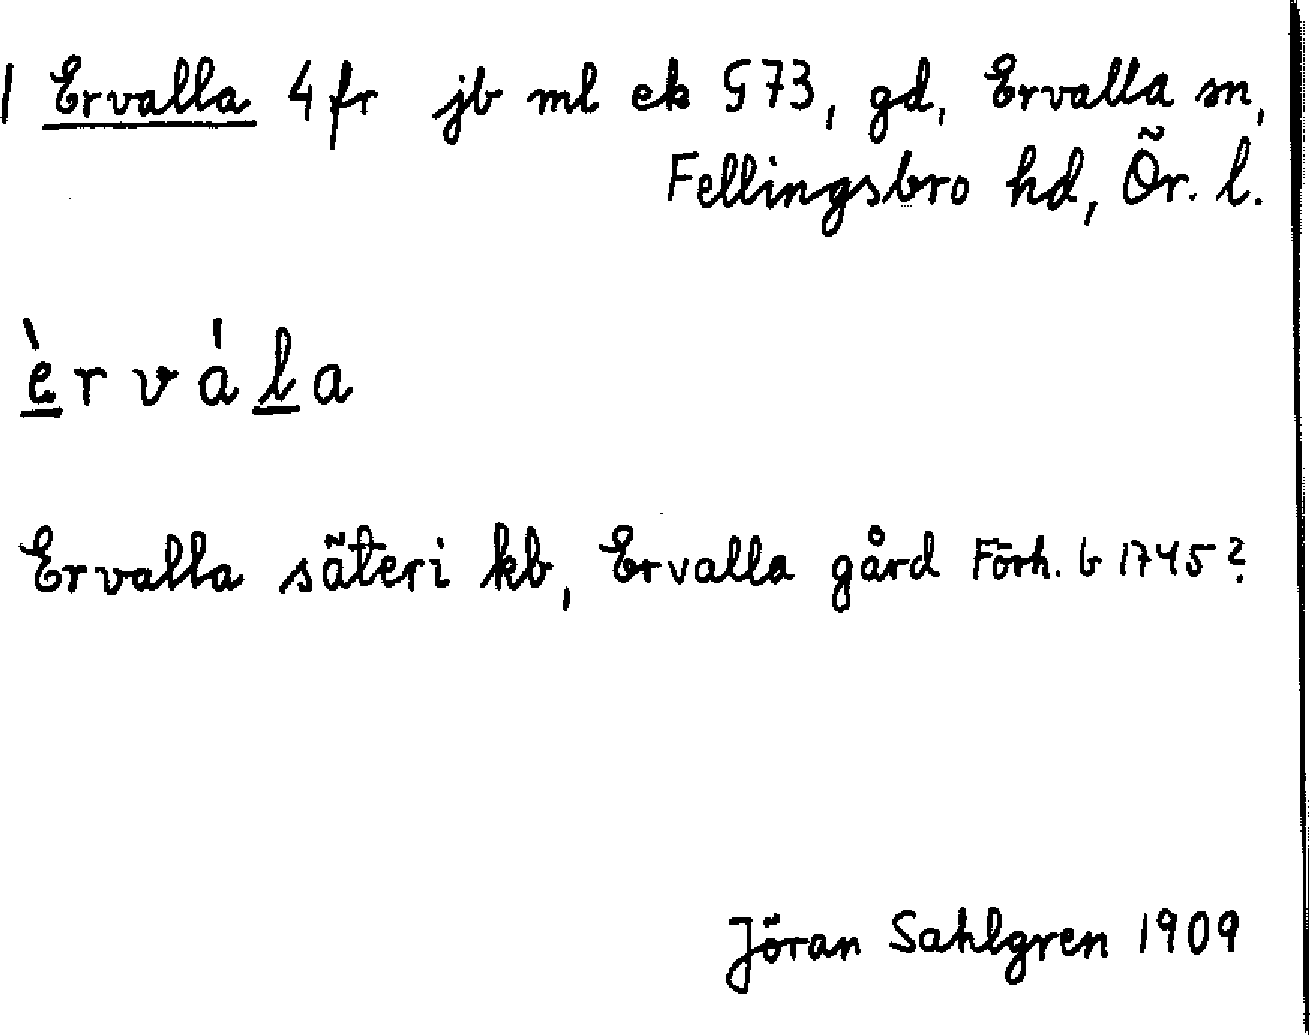 1 Ervalla 4 fr jb ml ek G73, gd, Ervalla sn,
Fellingsbro hd, Ör. l.
èrvála
Ervalla säteri kb, Ervalla gård Förh. b 1745?
Jöran Sahlgren 1909